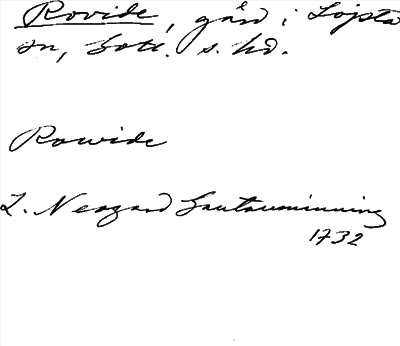 Rovide, gård i Lojsta
sn, Gotl. s. hd.
Rowide
L. Neogard Gautauminning
1732